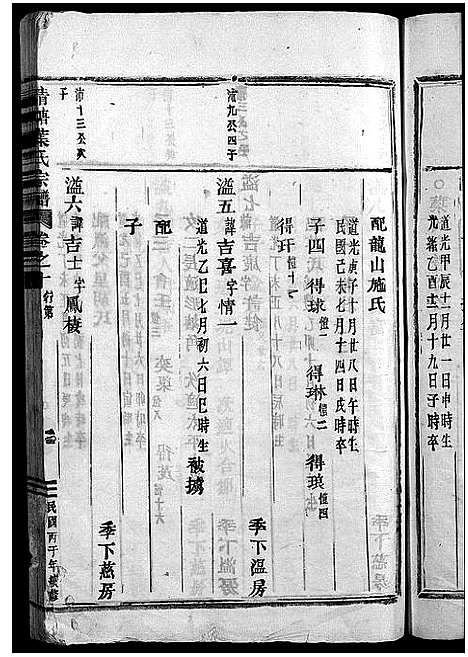 道光甲辰十二月廿一日申時生
光緒乙酉二月十九日子時卒
配龍山施氏
道光庚子十月廿八日午時生
民國己未七月十四日戌時卒
子四 得球值一 得琳值二 得琅值四
得玕值十一
季下溫房
沛九公四子
溢五諱吉喜字情一
道光乙巳七月初六日巳時生 被擄
配
子
季下慈房
沛十三公次子
溢六諱吉士字鳳棲
清塘葉氏宗譜 卷之一 行第
民國丙子年續修